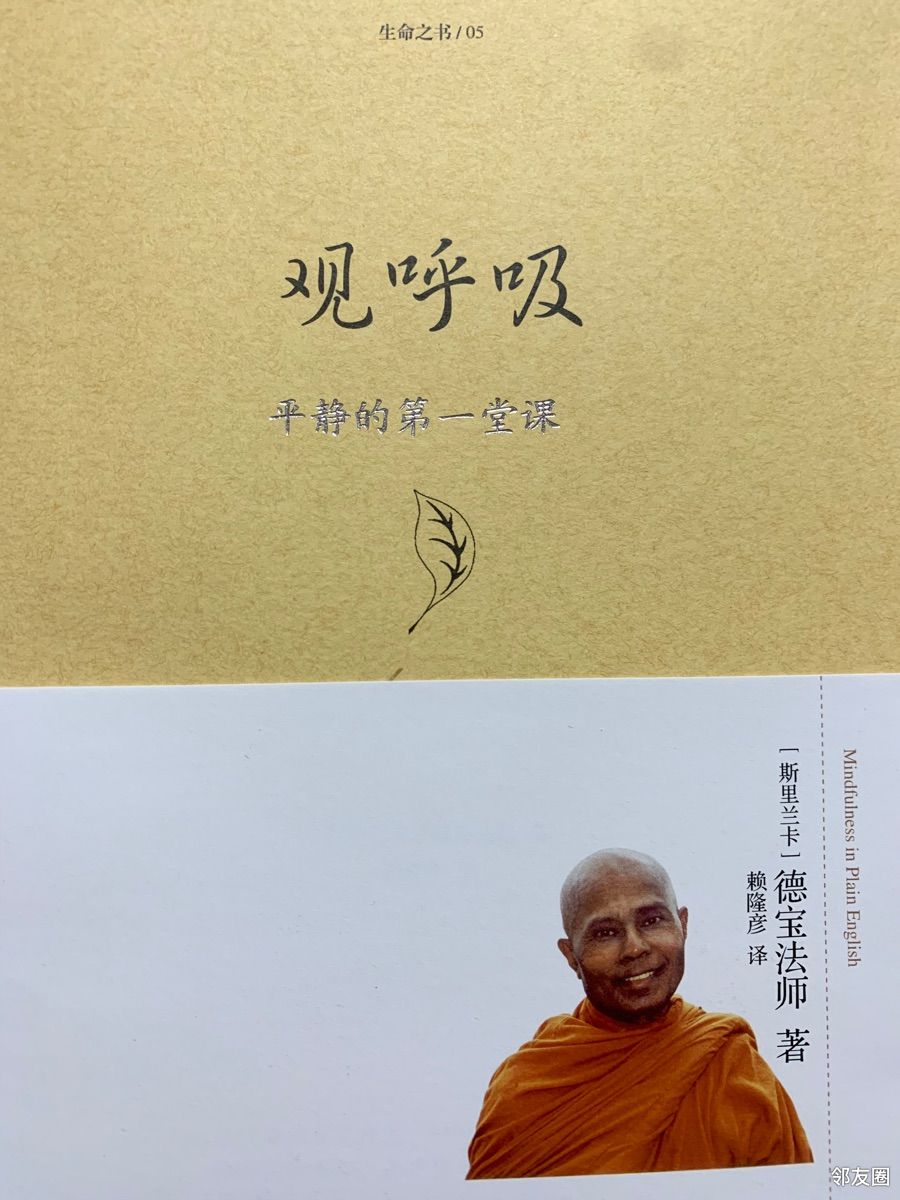 生命之书 / 05
观呼吸
平静的第一堂课
Mindfulness in Plain English
［斯里兰卡］德宝法师 著
赖隆彦 译
邻友圈